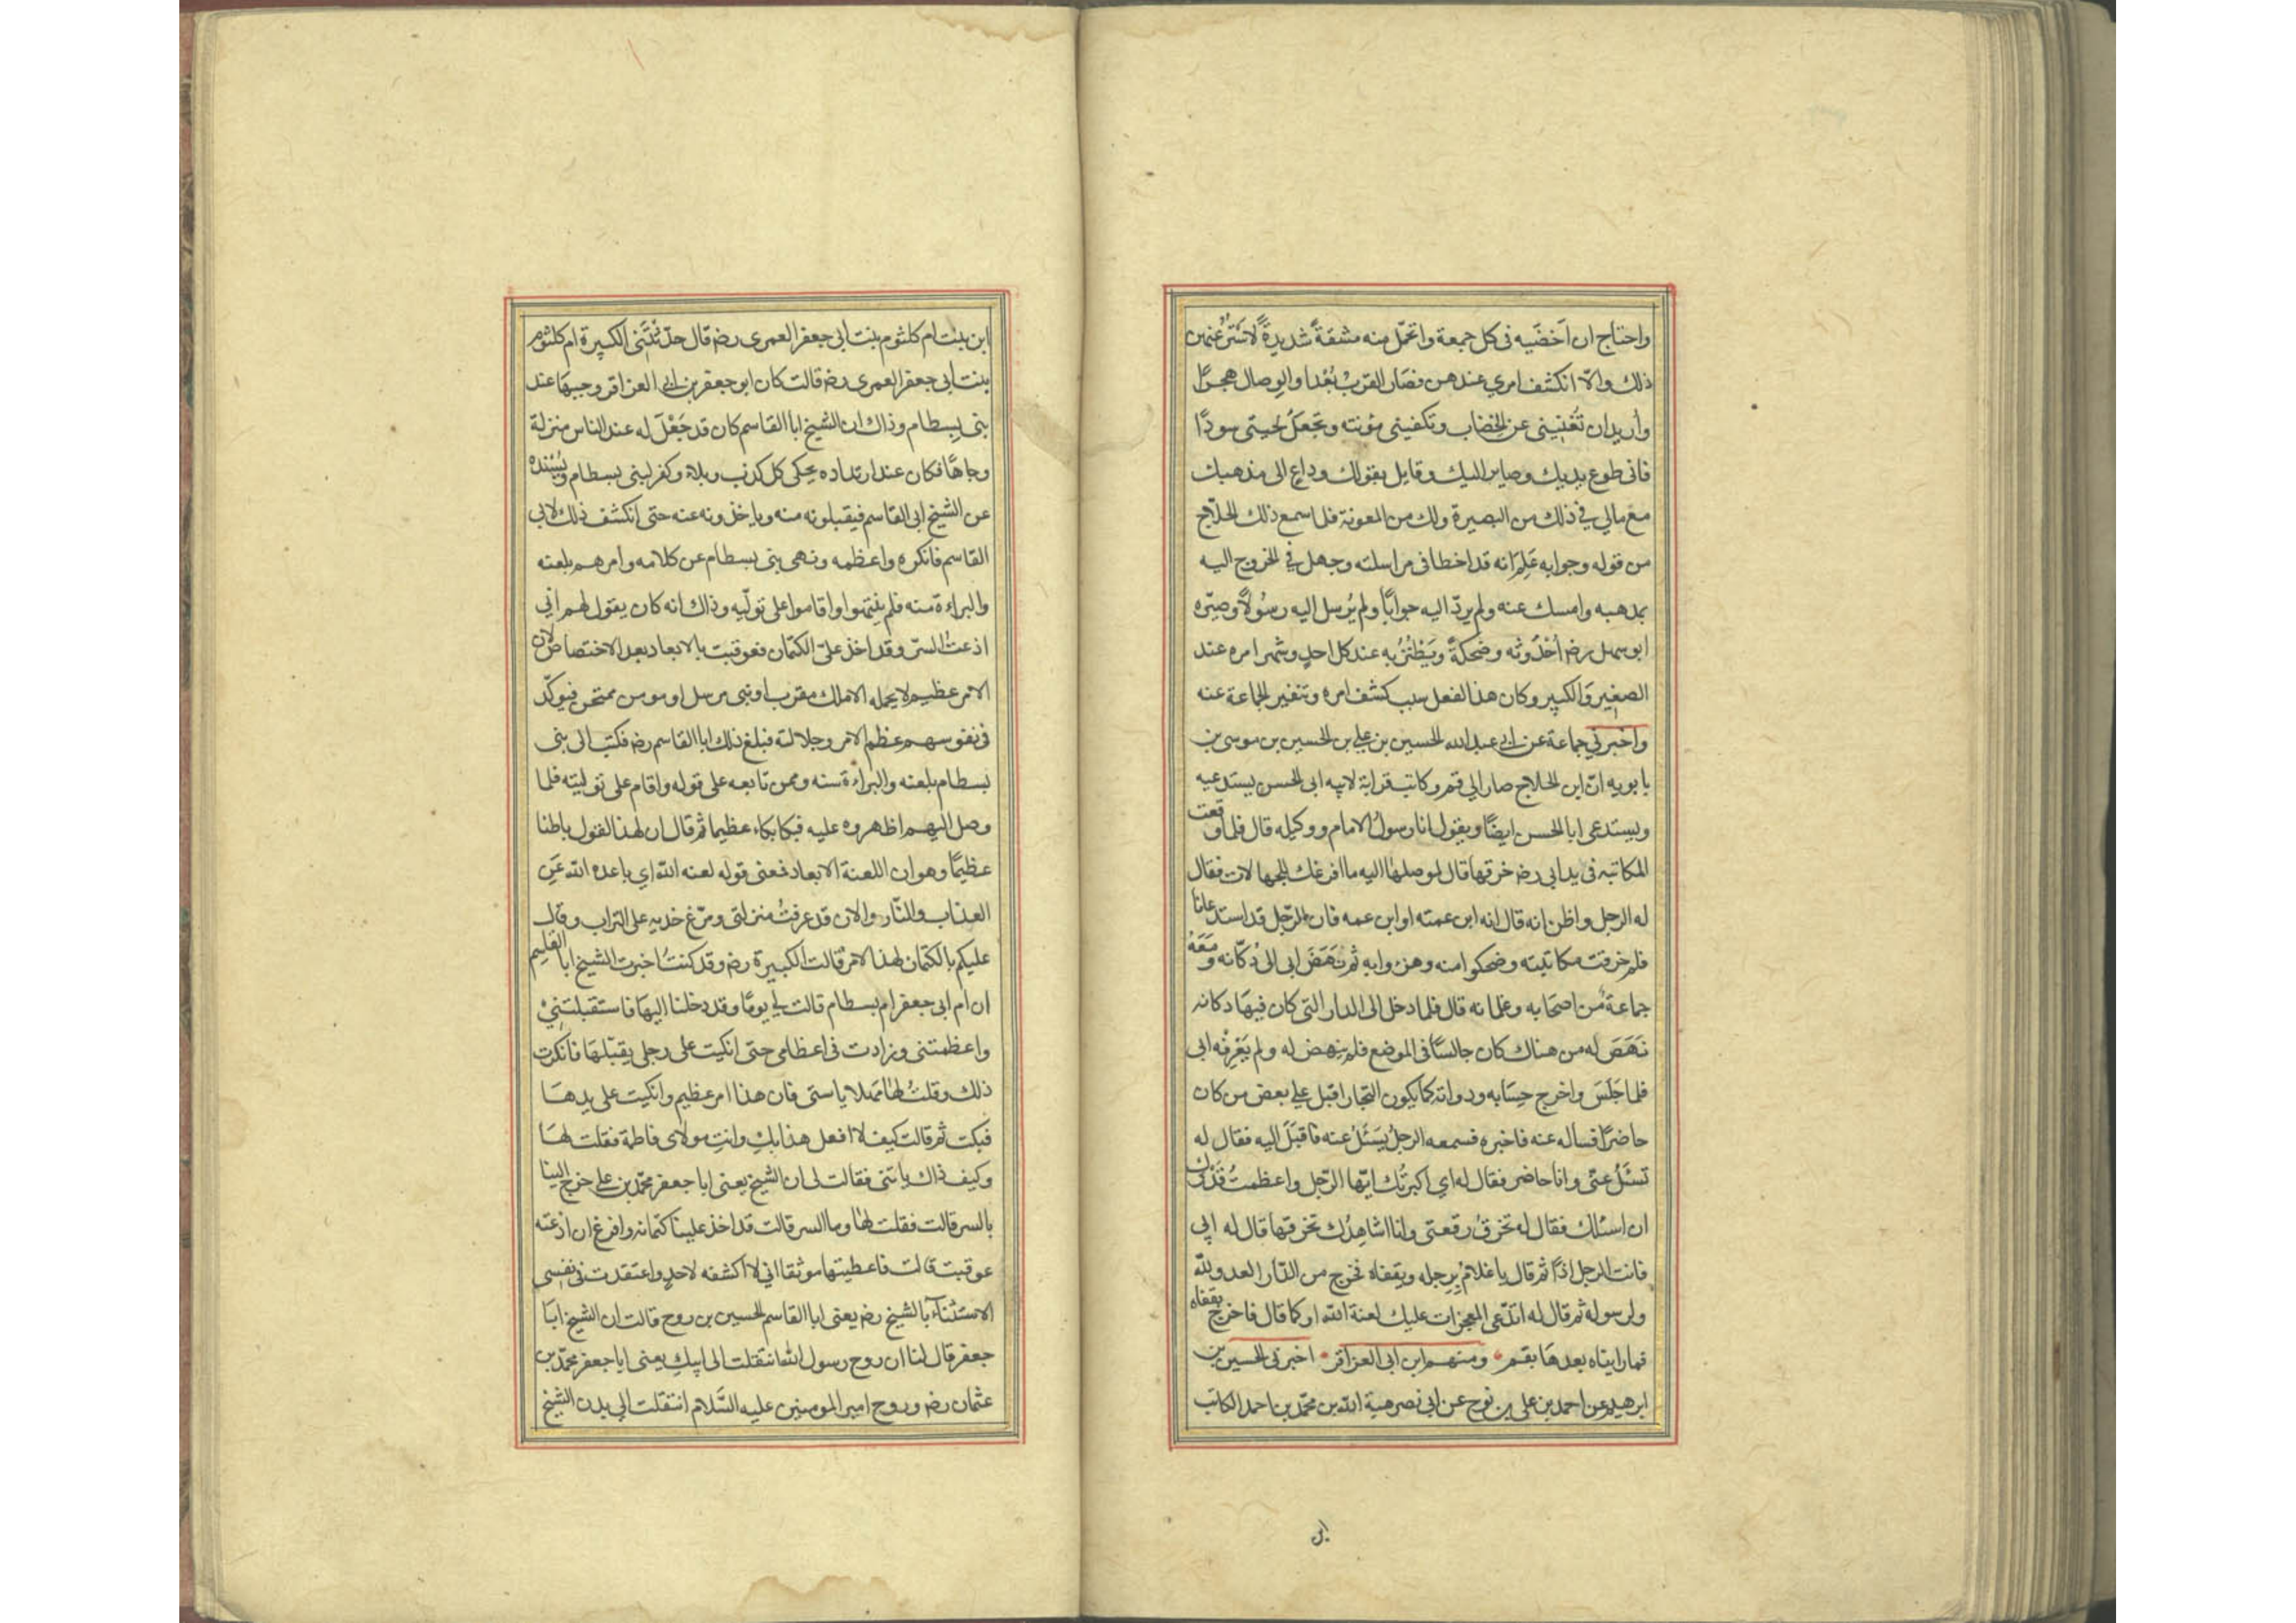 واحتاج ان اَخضَبه فى كل جمعة واتحمّل منه مشقةً شديدةً لاَستُرَ عنهن
ذلك والّا انكشف امري عندهن فصَار القربْ بُعْدا والوِصال هجرًا
وأريد ان تُغنيني عن الخضاب وتكفينى مؤنته وتجعلُ لحيتى سودًا
فانى طوع يديك وصاير اليك وقايل بقولك وداعٍ الى مذهبك
مع مالي في ذلك من البصيرة ولك من المعونة فلما سمع ذلك الحلاّج
من قوله وجوابه عَلِمَ انه قد اخطا فى مراسلته وجهل في الخروج اليه
بمذهبه وامسك عنه ولم يردّ اليه جوابًا ولم يُرسل اليه رسُولًا وصيّره
ابو سهل رضه اُحْدُوثه وضحكةً ويَطْنُزُ به عند كل احدٍ وشهر امره عند
الصغِير وَالكبير وكان هذا الفعل سبب كشف امره وتنفير الجماعة عنه
واخبرني جماعة عن ابي عبد الله الحسين بن علي بن الحسين بن موسى بن
بابويه انّ ابن الحلاج صار الي قم وكاتب قرابة لابيه ابى الحسن يستدعيه
ويستدعى ابا الحسن ايضًا ويقول انا رسولُ الامام ووكيله قال فلما وقعت
المكاتبه فى يد ابى رضه خرقها قال لموصلها اليه ما افرغك للجهالات فقال
له الرجل واظن انه قال انه ابن عمته او ابن عمه فان الرّجل قد استدعانا
فلم خرقت مكاتبته وضحكوا منه وهزؤا به ثم نهَضَ ابى الى دُكّانه ومَعَهُ
جماعة من اصحابه وغلمانه قال فلما دخل الى الدار التى كان فيهَا دكانه
نَهَضَ له من هناك كان جالسًا فى الموضع فلم ينهض له ولم يَعْرِفْه ابى
فلما جَلَسَ واخرج حِسَابه ودواته كما يكون التجار اقبل علي بعض من كان
حاضرًا فساله عنه فاخبره فسمعه الرجلُ يَسْئَلُ عنه فاَقبَلَ اليه فقال له
تسْئَلُ عنّى وانا حاضر فقال له اي اكبرتُك ايّها الرّجل واعظمتُ قَدْرك
ان اسئلك فقال له تخرقُ رقعتى وانا اشاهِدُك تخرقها قال له ابى
فانت الرجل اذًا ثم قال يا غلامُ بِرِجله وبقفاه فخرج من الدّار العدو للّه
ولرسوله ثم قال له اتدّعى المعجزات عليك لعنة الله او كما قال فاخرج بقفاه
فما رايناه بعدهَا بقم ومنهم ابن ابى العزاقر اخبرنى الحسين بن
ابرهيم عن احمد بن على بن نوح عن ابى نصر هبة الله بن محمّد بن احمد الكاتب
ابن بنت ام كلثوم بنت ابى جعفر العمرى رضه قال حدّثتْني الكبيرة ام كلثوم
بنت ابى جعفر العمرى رضه قالت كان ابو جعفر بن ابي العزاقر وجيهًا عند
بنى بسطام وذاك ان الشيخ ابا القاسم كان قد جَعَلَ له عند الناس منزلة
وجاهًا فكان عند ارتداده يحكى كل كذب وبلاء وكفر لبنى بسطام ويُسْنده
عن الشيخ ابى القاسم فيقبلونه منه وياخذونه عنه حتى انكشف ذلك لابى
القاسم فانكره واعظمه ونهى بنى بسطام عن كلامه وامرهم بلعنه
والبراءة منه فلم ينتهوا واقاموا على تولّيه وذاك انه كان يقول لهم انّي
اذعتُ السرّ وقد اخذ علىّ الكتمان فعوقبت بالابعاد بعد الاختصاص لان
الامر عظيم لا يحمله الا ملك مقرب او نبى مرسل او مومن ممتحن فيوكّد
فى نفوسهم عظم الامر وجلالته فبلغ ذلك ابا القاسم رضه فكتب الى بنى
بسطام بلعنه والبراءة منه وممن تابعه على قوله واقام على توليته فلما
وصل اليهم اظهروه عليه فبكا بكاء عظيما ثم قال ان لهذا القول باطنا
عظيمًا وهو ان اللعنة الابعاد فمعنى قوله لعنه الله اي باعده الله عَنِ
العذاب والنّار والان قد عرفتُ منزلتى ومرّغ خديه على التراب وقال
عليكم بالكتمان لهذا الامر قالت الكبيرة رضه وقد كنتُ اخبرت الشيخ ابا القاسم
ان ام ابى جعفر ام بسطام قالت لي يومًا وقد دخلنا اليهَا فاستقبلتني
واعظمتنى وزادت فى اعظامى حتى انكبت على رجلى يقبّلهَا فانكرت
ذلك وقلتُ لها مهلا يا ستى فان هذا امر عظيم وانكببت على يدهَا
فبكت ثم قالت كيف لا افعل هذا بكِ وانتِ مولاى فاطمة فقلت لهَا
وكيف ذاك يا ستى فقالت لى ان الشيخ يعنى ابا جعفر محمّد بن علي خرج الينا
بالسر قالت فقلت لها وما السر قالت قد اخذ علينا كتمانه وافزع ان اذعته
عوقبت قالت فاعطيتها موثقا اني لا اكشفه لاحدٍ واعتقدت فى نفسى
الاستثناء بالشيخ رضه يعنى ابا القاسم الحسين بن روح قالت ان الشيخ ابَا
جعفر قال لنا ان روح رسول الله انتقلت الى ابيكِ يعنى ابا جعفر محمّد بن
عثمان رضه وروح امير المومنين عليه السَّلام انتقلت الي بدن الشيخ